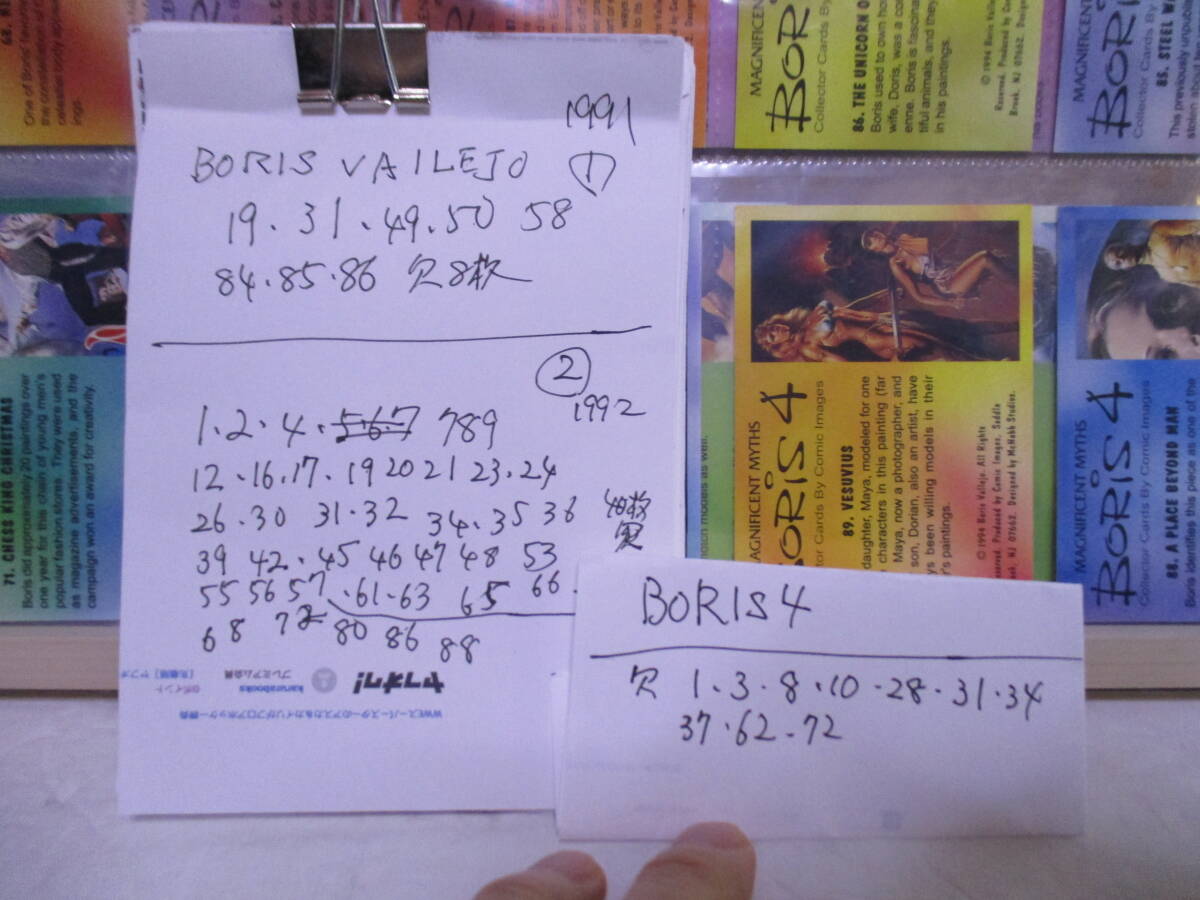 1991
BORIS VAILEJO ①
19.31.49.50 58
84.85.86 欠8枚
②
1992
1.2.4.5.6.7 789
12.16.17.19 20 21 23.24
26.30 31.32 34.35 36
39 42.45 46 47 48 53
55 56 57.61.63 65 66
68 72 80 86 88
ヤフオク!
karurabooks
プレミアム会員
BORIS 4
欠 1.3.8.10.28.31.34
37.62.72
71. CHESS KING CHRISTMAS
Boris did approximately 20 paintings over
one year for this chain of young men's
popular fashion stores. They were used
as magazine advertisements, and the
campaign won an award for creativity.
MAGNIFICENT
BORI
Collector Cards By Comic
86. THE UNICORN O
Boris used to own ho
wife, Doris, was a co
enne. Boris is fascina
tiful animals, and they
in his paintings.
© 1994 Boris Valle
Reserved. Produced by Com
Brook, NJ 07662. Design
MAGNIFICENT
BORI
Collector Cards By
85. STEEL WA
This previously unpubli
MAGNIFICENT MYTHS
BORIS 4
Cards By Comic Images
89. VESUVIUS
daughter, Maya, modeled for one
characters in this painting (far
Maya, now a photographer, and
son, Dorian, also an artist, have
ys been willing models in their
r's paintings.
© 1994 Boris Vallejo. All Rights
Reserved. Produced by Comic Images, Saddle
Designed by McNabb Studios.
MAGNIFICENT MYTHS
BORIS 4
Collector Cards By Comic Images
88. A PLACE BEYOND MAN
Boris identifies this piece as one of the